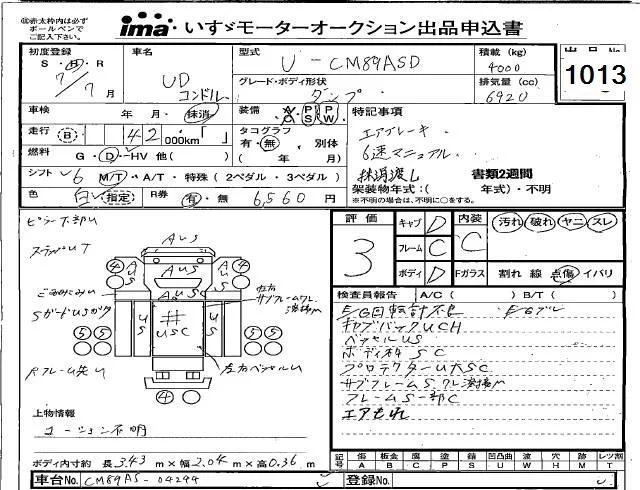 ㊟赤太枠内は必ず
ボールペンで
ご記入下さい。
ima いすゞモーターオークション出品申込書
初度登録
S・H・R
7/7月
車名
UD
コンドル
型式
U-CM89ASD
グレード・ボディ形状
ダンプ
積載 (kg)
4000
排気量 (cc)
6920
出品No.
1013
車検 年・月・抹消
走行 B 42 000km「 」
燃料 G・D・HV 他( )
シフト 6 M/T・A/T・特殊(2ペダル・3ペダル)
色 白い 指定 R券 有・無 6,560円
装備 A/C PS PW
タコグラフ
有・無・別体
( 年 月)
特記事項
エアブレーキ
6速マニュアル
抹消渡し 書類2週間
架装物年式:( 年式)・不明
※不明の場合は、不明に○をする。
評価
3
キャブ D
フレーム C
ボディ D
内装 C
Fガラス
汚れ 破れ ヤニ スレ
割れ 線 点傷 イバリ
検査員報告 A/C( ) B/T( )
E/G回転計不良 E/Gブル
キャブバックUCH
ベッセルUS
ボディ枠SC
プロテクターU大SC
サブフレームSクレ溶接m
フレームS一部C
エアもれ
AUS
AUS
AUS
AUS
US
US
#
USC
④
④
⑤⑤
⑤⑤
④
SガードUSガタ
左右ベッセルU
上物情報
コーション不明
ボディ内寸約 長3.43m×幅2.04m×高0.36m
車台No. CM89AS-04294
記号 傷A 板金B 腐C 塗P 錆S 凹凸曲U 波W 穴H 跡M レンズ割T
登録No.